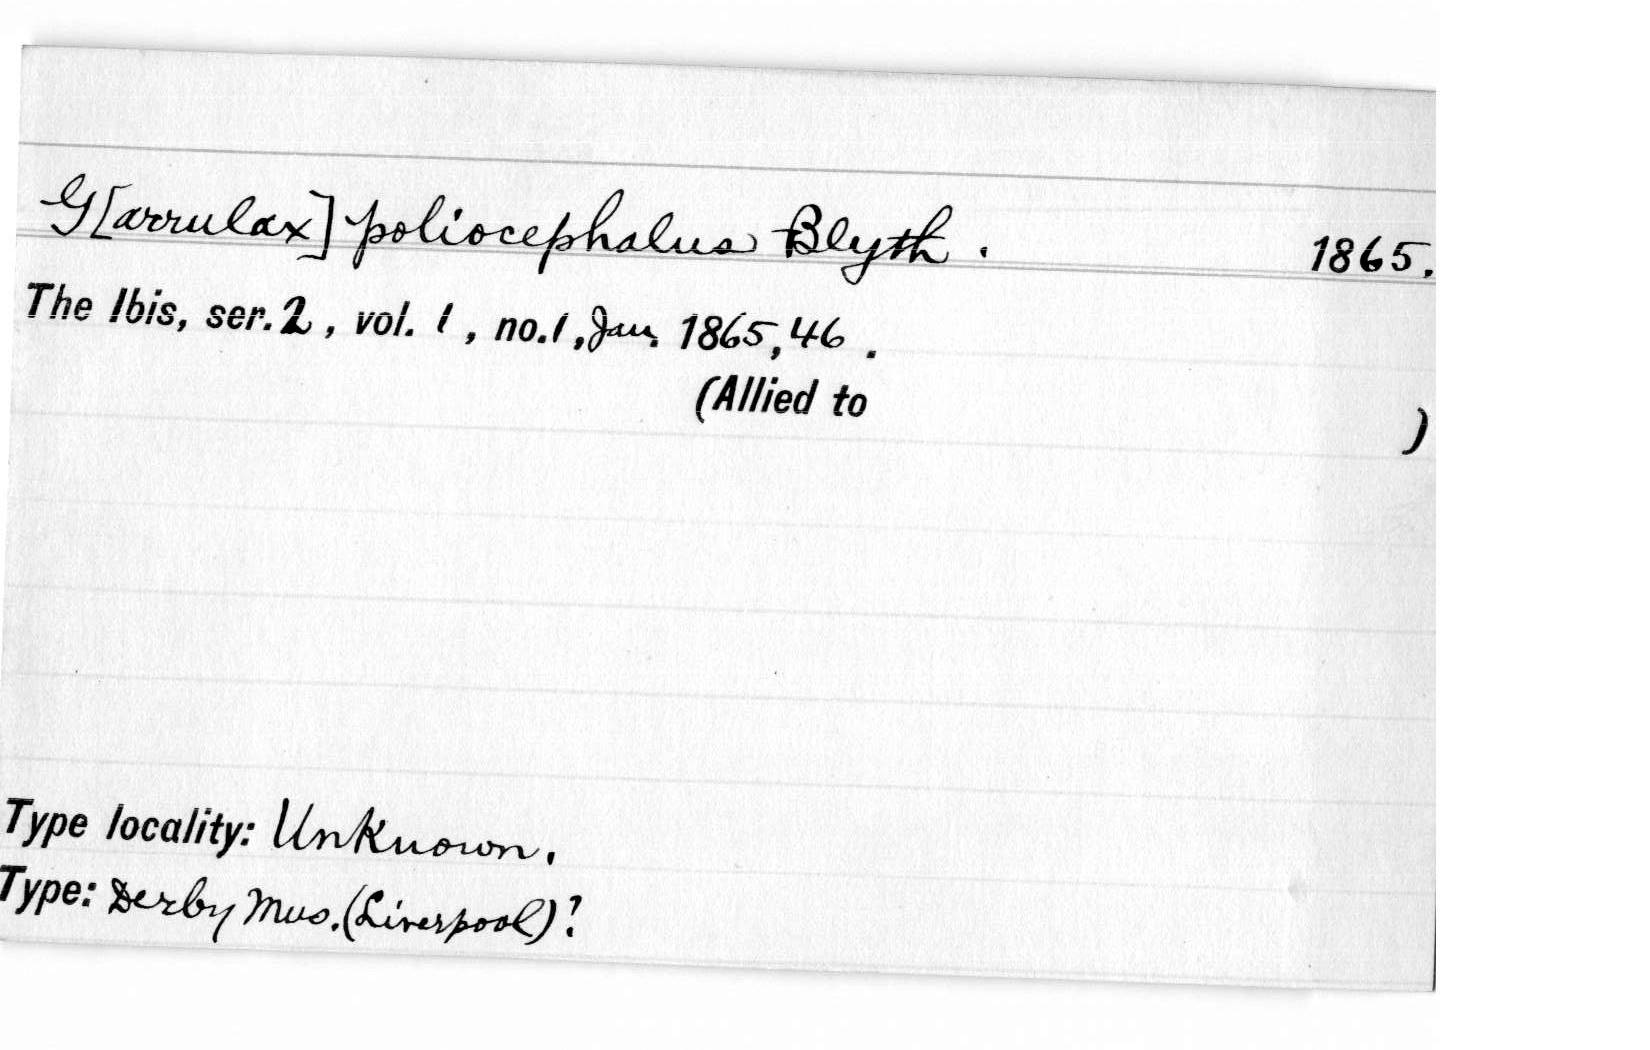 G[arrulax] poliocephalus Blyth. 1865.
The Ibis, ser. 2, vol. 1, no. 1, Jan. 1865, 46.
(Allied to )
Type locality: Unknown.
Type: Derby Mus. (Liverpool)?